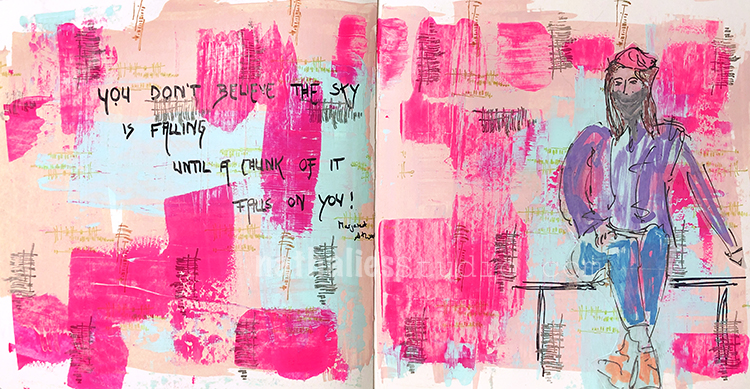 YOU DON'T BELIEVE THE SKY
IS FALLING
UNTIL A CHUNK OF IT
FALLS ON YOU!
Margaret
nathaliesstudio.com